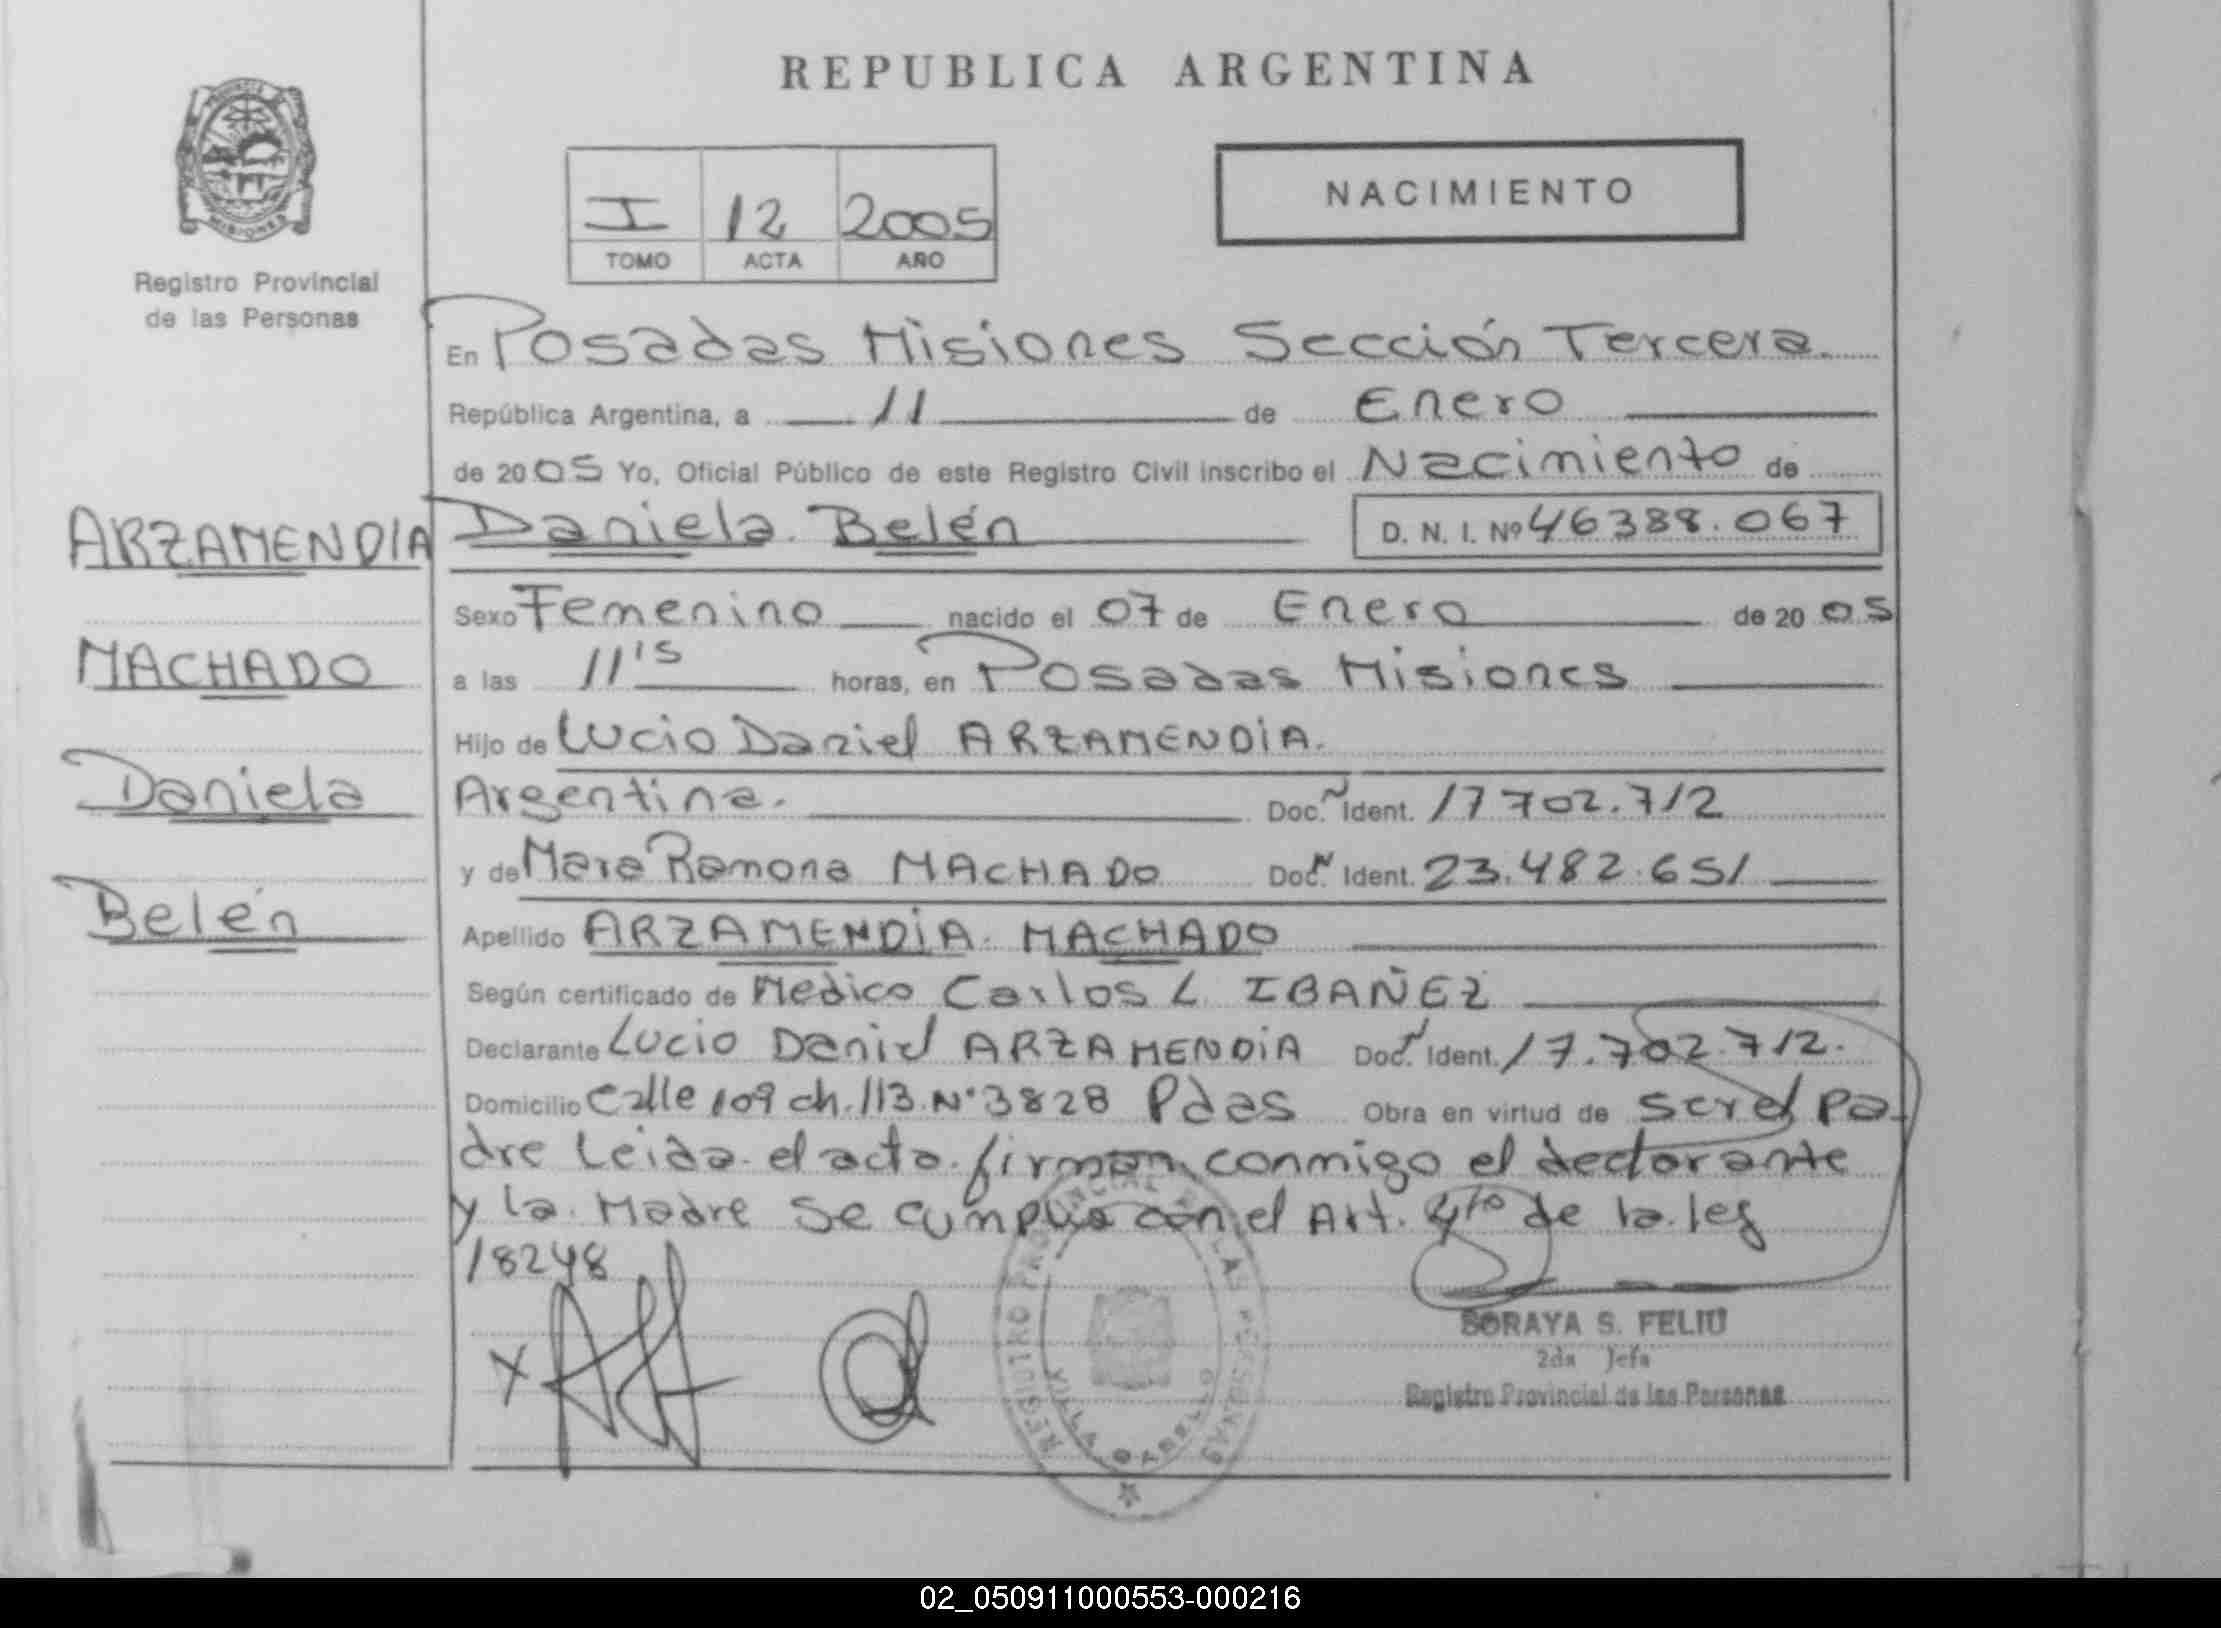 REPUBLICA ARGENTINA
PROVINCIA DE MISIONES
Registro Provincial
de las Personas
I 12 2005
TOMO ACTA AÑO
NACIMIENTO
En Posadas Misiones Sección Tercera
República Argentina, a 11 de Enero
de 2005 Yo, Oficial Público de este Registro Civil inscribo el Nacimiento de
Daniela Belén D. N. I. Nº 46388.067
Sexo Femenino nacido el 07 de Enero de 2005
a las 11 15 horas, en Posadas Misiones
Hijo de Lucio Daniel ARZAMENDIA.
Argentina. Doc. N Ident. 17702.712
y de Mara Ramona MACHADO Doc. N Ident. 23.482.651
Apellido ARZAMENDIA MACHADO
Según certificado de Medico Carlos L. IBAÑEZ
Declarante Lucio Daniel ARZAMENDIA Doc. N Ident. 17.702.712.
Domicilio Calle 109 ch. 113 Nº 3828 Pdas Obra en virtud de ser el Pa-
dre Leida el acta firman conmigo el declarante
y la Madre Se cumplio con el Art. 4to de la ley
18248
ARZAMENDIA
MACHADO
Daniela
Belén
REGISTRO PROVINCIAL DE LAS PERSONAS
VILLA
SORAYA S. FELIU
2da Jefa
Registro Provincial de las Personas
02_050911000553-000216